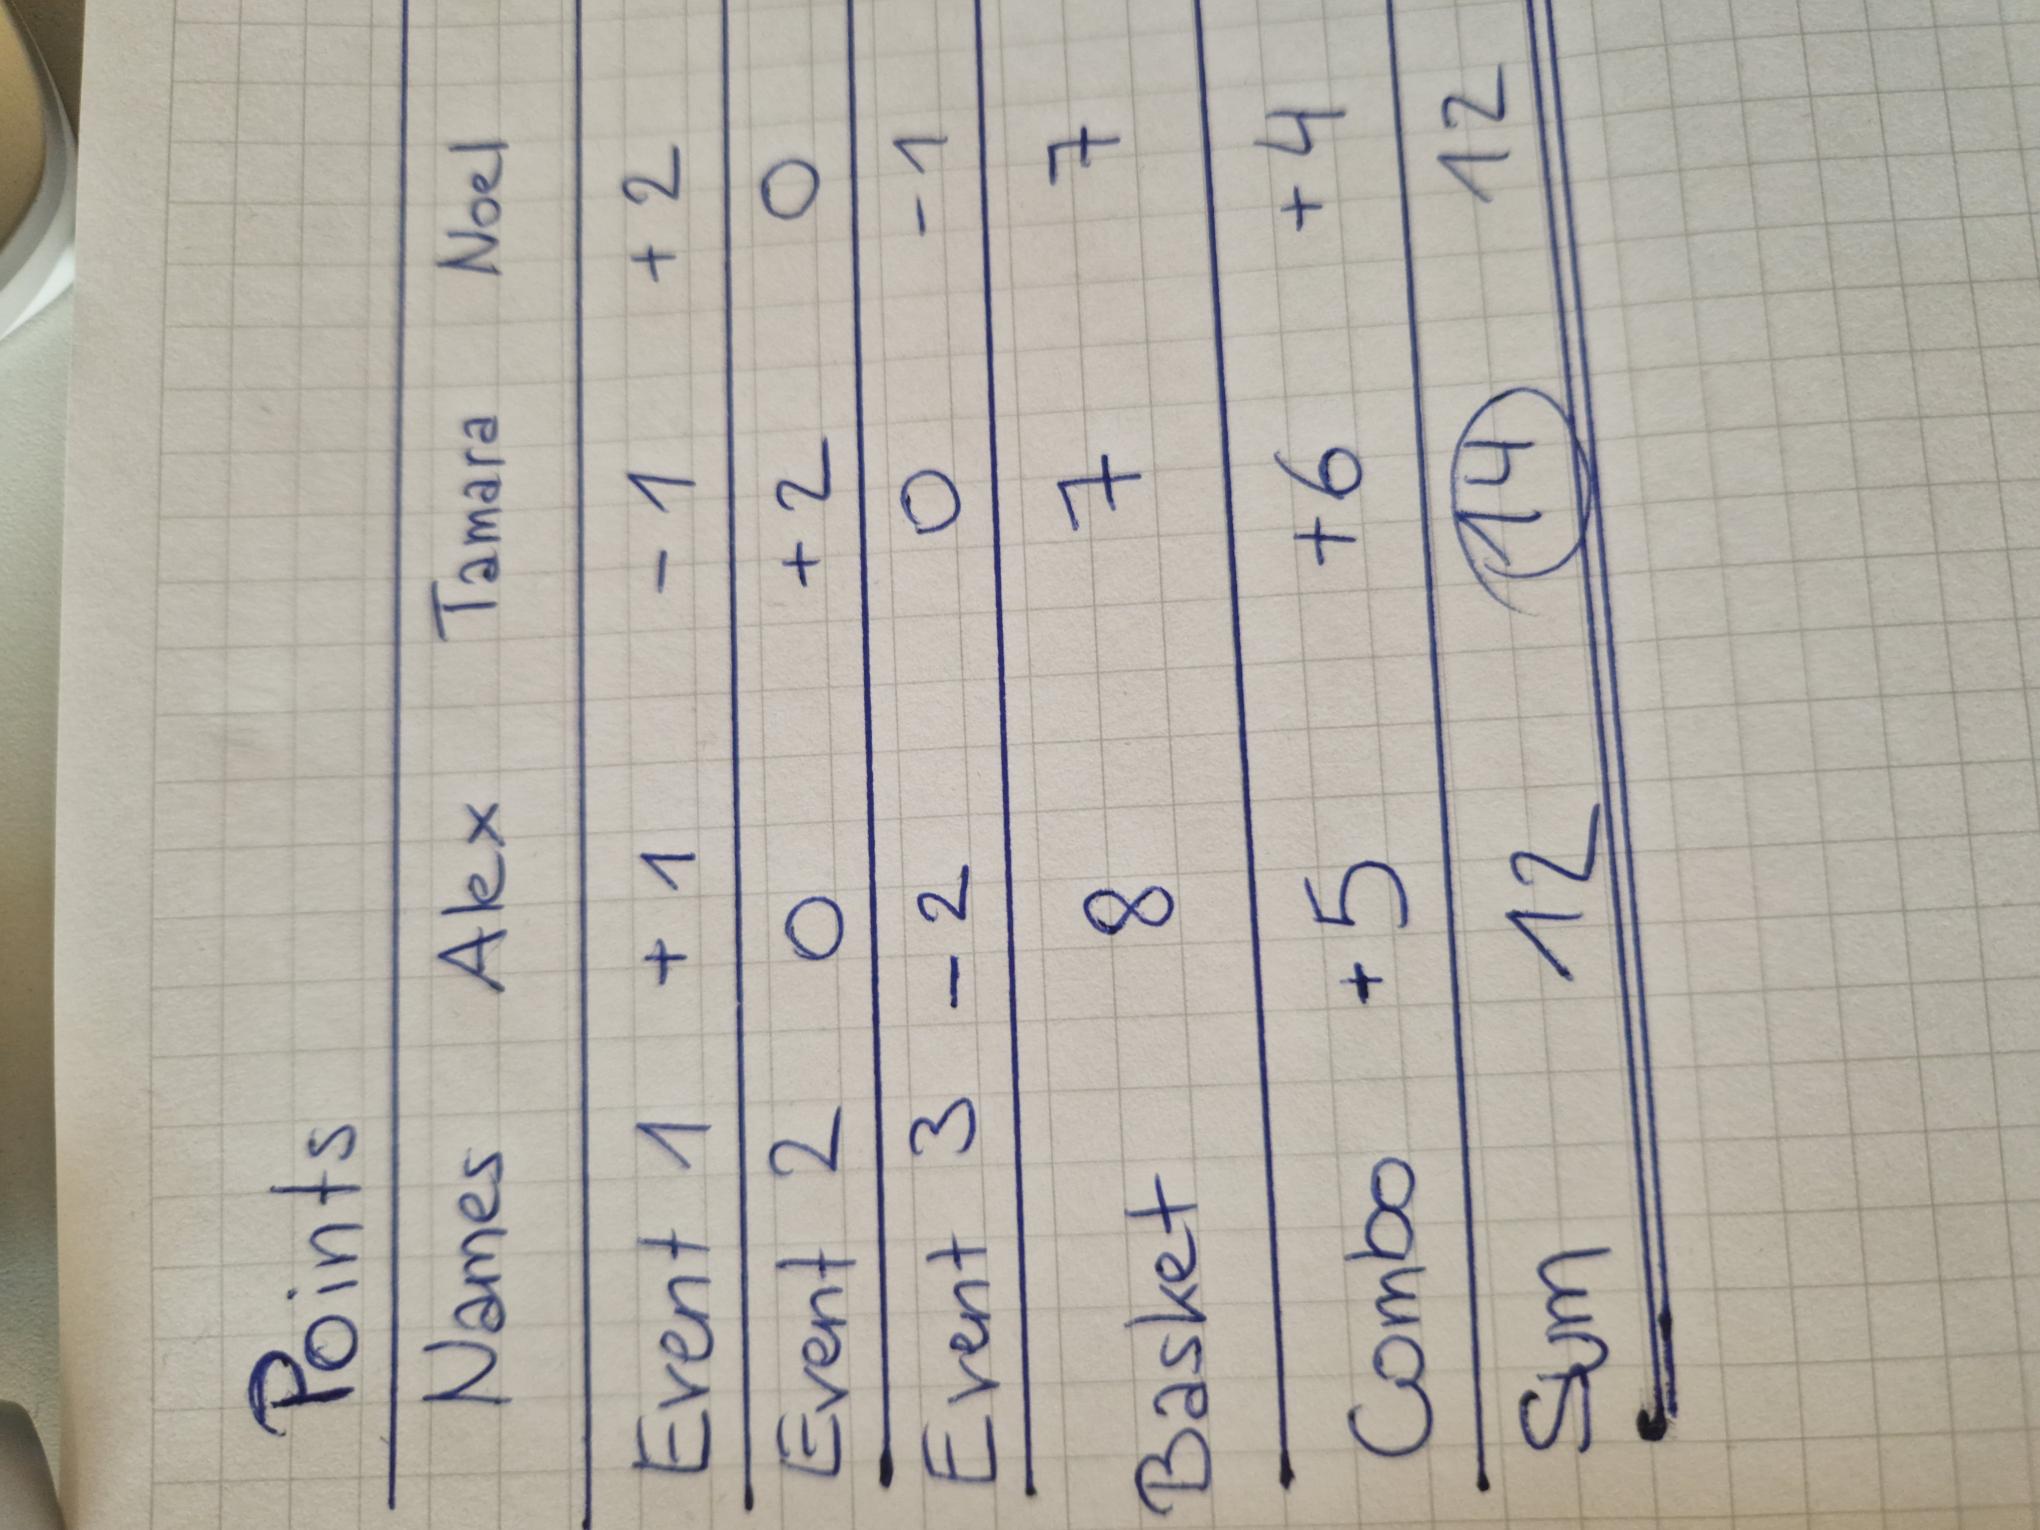 Points
Names Alex Tamara Noel
Event 1 + 1 - 1 + 2
Event 2 0 + 2 0
Event 3 - 2 0 - 1
Basket 8 7 7
Combo + 5 + 6 + 4
Sum 12 14 12